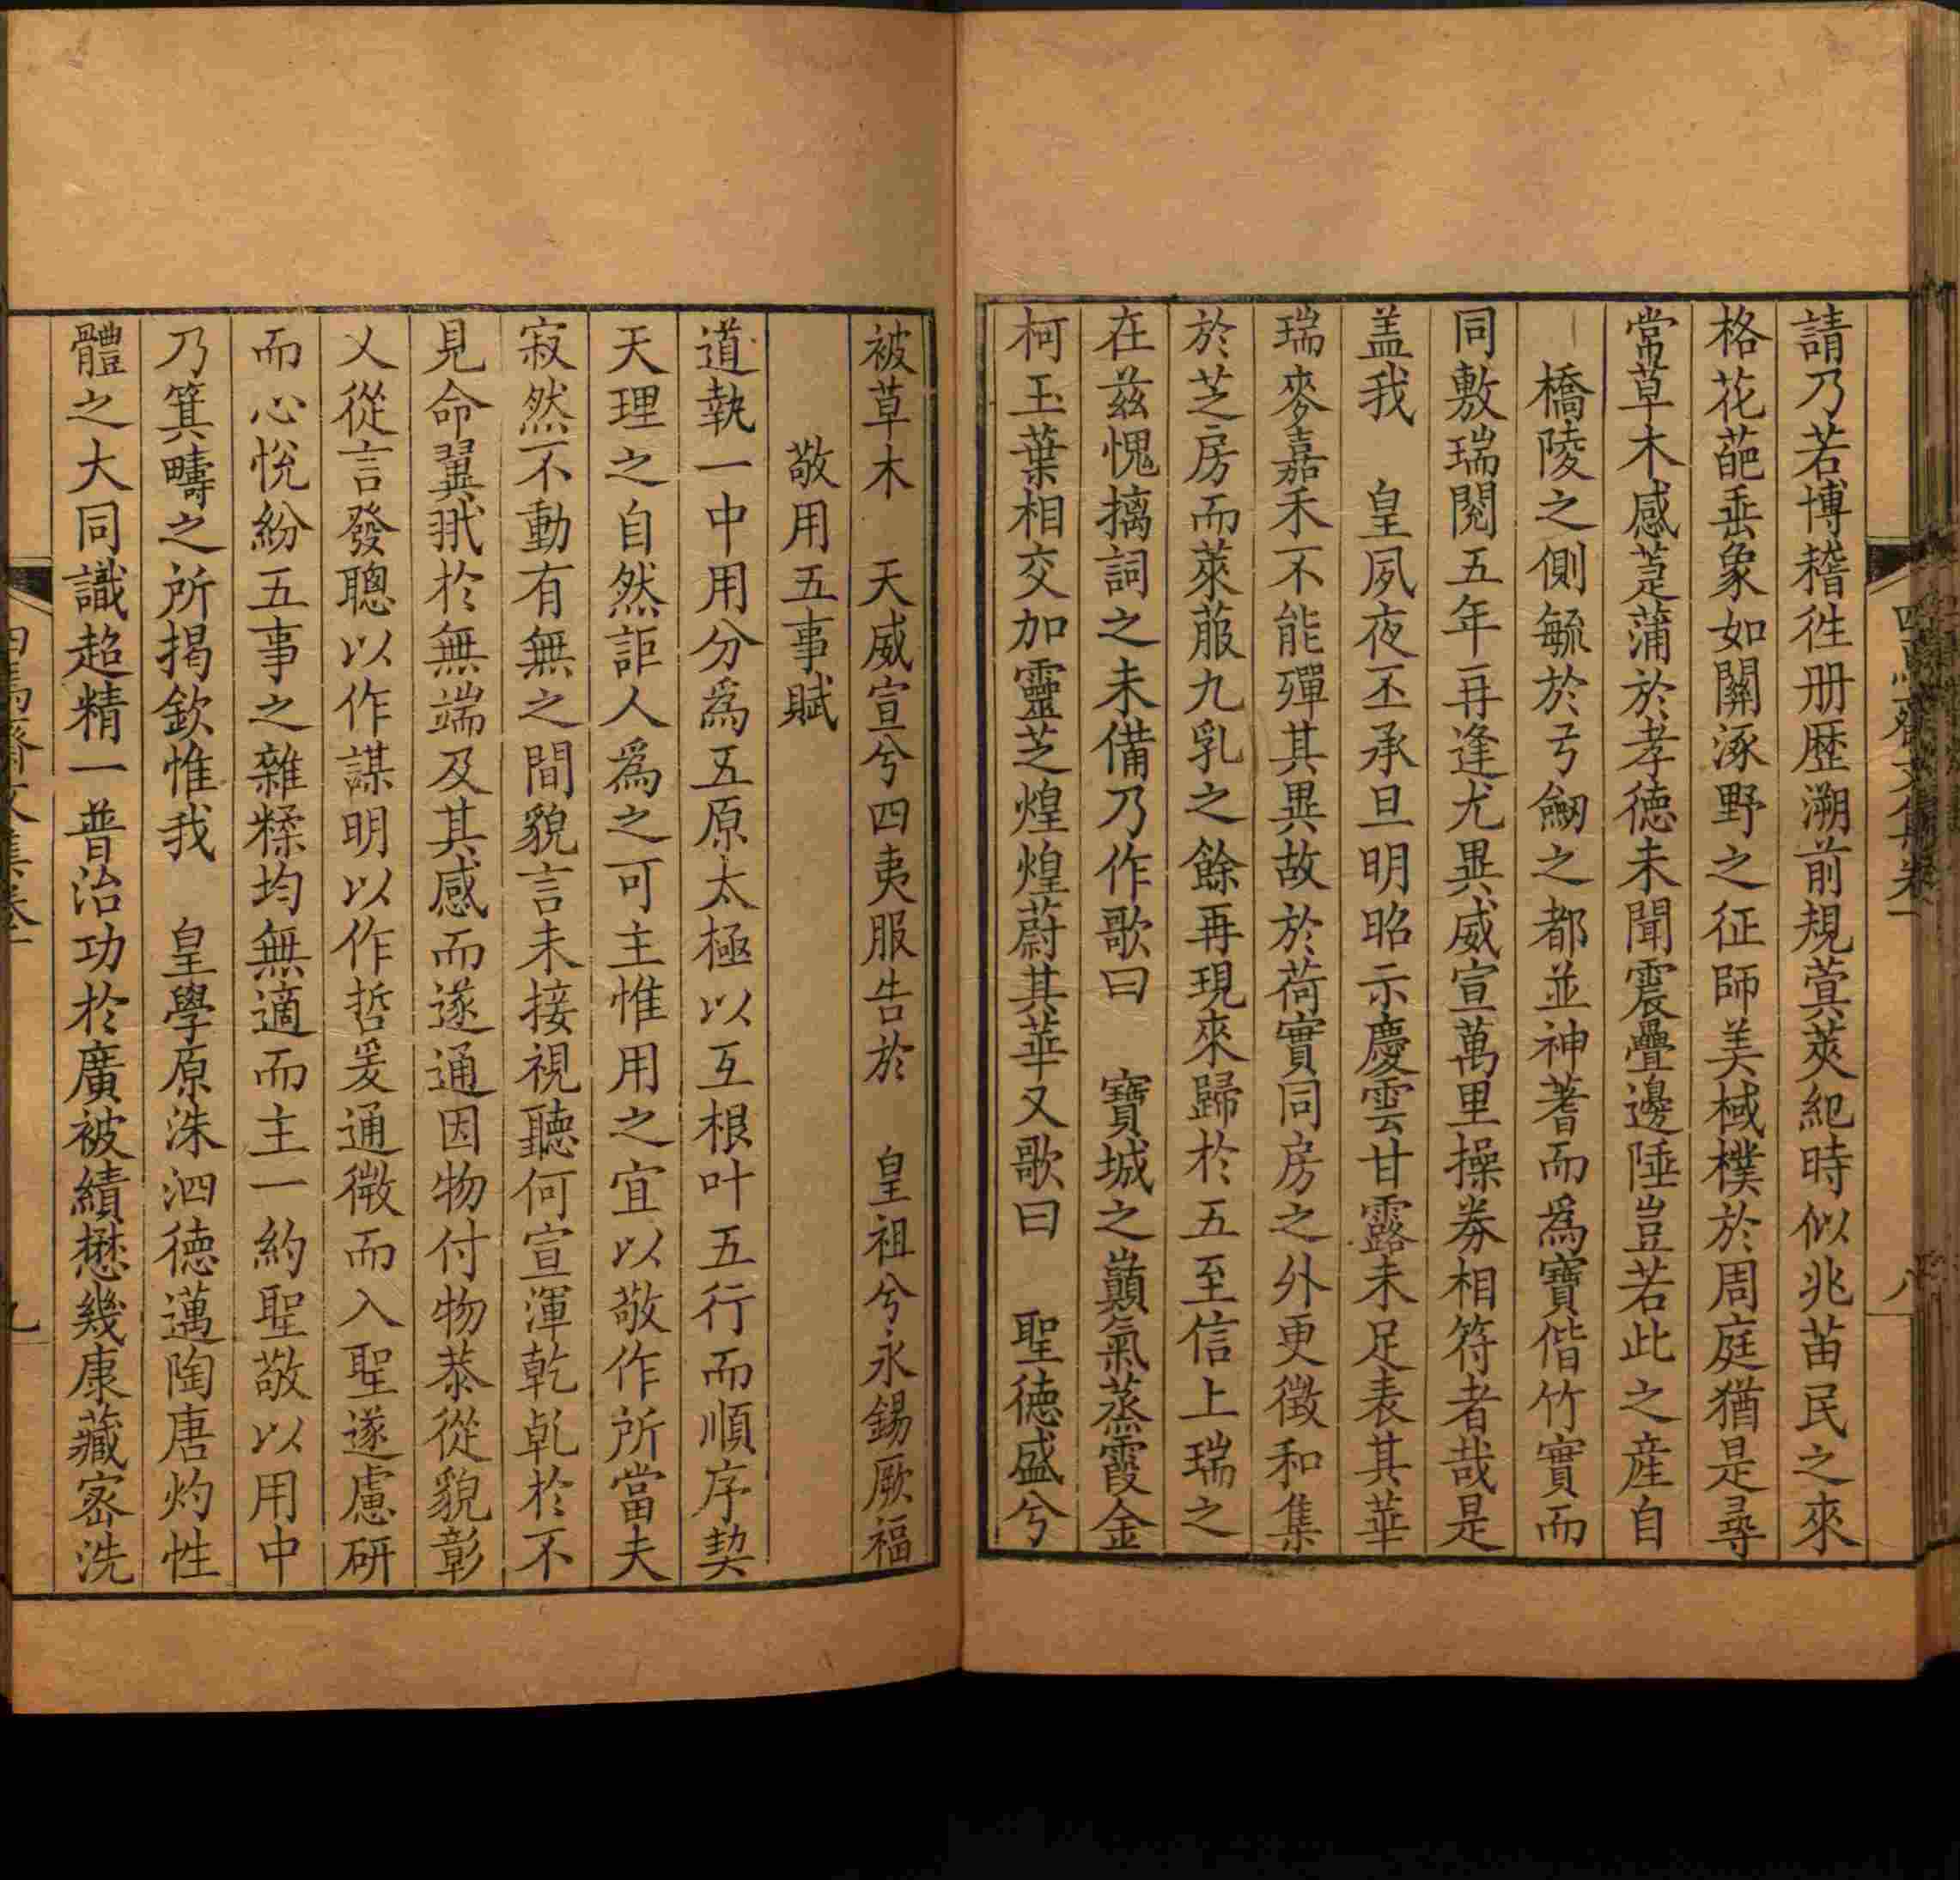 請乃若博稽徃册歴溯前規蓂莢紀時似兆苗民之來
格花葩垂象如關涿野之征師美棫樸於周庭猶是尋
常草木感萐蒲於孝德未聞震疊邊陲豈若此之産自
橋陵之側毓於弓劒之都並神蓍而爲寶偕竹實而
同敷瑞閱五年再逢尤異威宣萬里操券相符者哉是
盖我 皇夙夜丕承旦明昭示慶雲甘露未足表其華
瑞麥嘉禾不能殫其異故於荷實同房之外更徵和集
於芝房而萊菔九乳之餘再現來歸於五至信上瑞之
在兹愧摛詞之未備乃作歌曰 寶城之巔氣蒸霞金
柯玉葉相交加靈芝煌煌蔚其華又歌曰 聖德盛兮
被草木 天威宣兮四夷服告於 皇祖兮永錫厥福
敬用五事賦
道執一中用分爲五原太極以互根叶五行而順序契
天理之自然詎人爲之可主惟用之宜以敬作所當夫
寂然不動有無之間貌言未接視聽何宣渾乾乹於不
見命翼翼於無端及其感而遂通因物付物恭從貌彰
乂從言發聰以作謀明以作哲爰通微而入聖遂慮研
而心悅紛五事之雜糅均無適而主一約聖敬以用中
乃箕疇之所揭欽惟我 皇學原洙泗德邁陶唐灼性
體之大同識超精一普治功於廣被績懋幾康藏密洗
四焉齋文集卷一
八
九